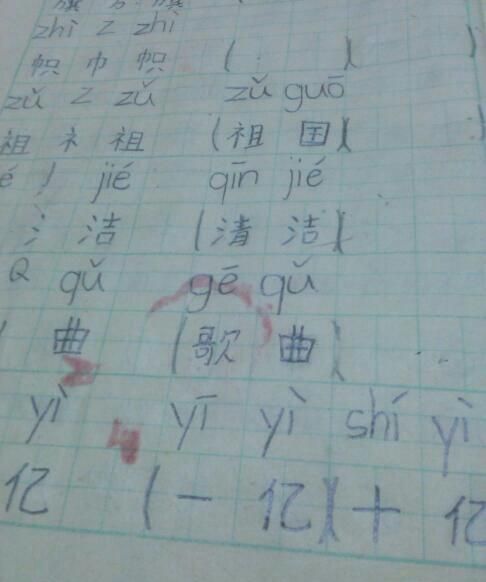 旗 方 旗
zhì Z zhì
帜 巾 帜 ( )( )
zǔ Z zǔ zǔ guō
祖 礻 祖 (祖 国)( )
é J jié qīn jié
氵 洁 (清 洁)(
Q qǔ gē qǔ
曲 (歌 曲)(
yì yī yì shí yì
亿 (一 亿)(十 亿